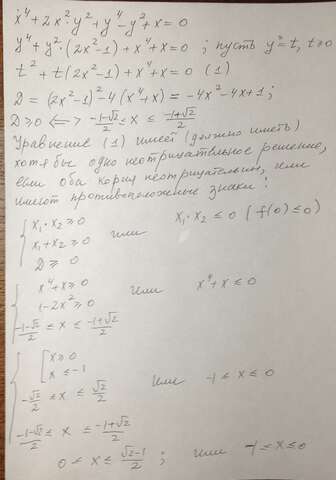 x⁴+2x²·y²+y⁴-y²+x=0
y⁴+y²·(2x²-1)+x⁴+x=0 ; пусть y²=t, t≥0
t²+t(2x²-1)+x⁴+x=0 (1)
D=(2x²-1)²-4(x⁴+x)=-4x²-4x+1;
D≥0 <=> (-1-√2)/2 ≤ x ≤ (-1+√2)/2
Уравнение (1) имеет (должно иметь)
хотя бы одно неотрицательное решение,
если оба корня неотрицательны, или
имеют противоположные знаки:
{ x₁·x₂≥0 или x₁·x₂≤0 (f(0)≤0)
x₁+x₂≥0
D≥0
{ x⁴+x≥0 или x⁴+x≤0
1-2x²≥0
(-1-√2)/2 ≤ x ≤ (-1+√2)/2
{ [ x≥0
x≤-1 или -1≤x≤0
-√2/2 ≤ x ≤ √2/2
(-1-√2)/2 ≤ x ≤ (-1+√2)/2
0≤x≤(√2-1)/2 ; или -1≤x≤0